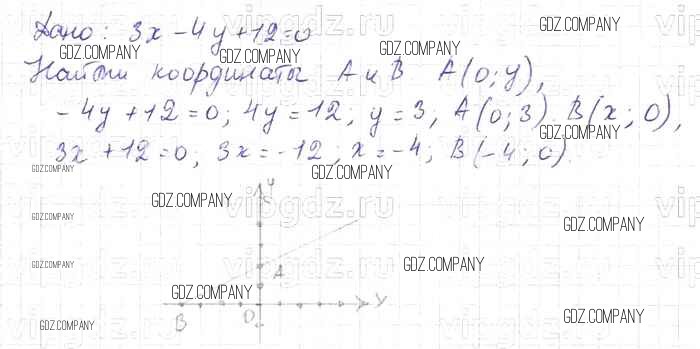 Дано: 3x - 4y + 12 = 0
GDZ.COMPANY
GDZ.COMPANY
Найти координаты A и B A(0; y),
GDZ.COMPANY
GDZ.COMPANY
-4y + 12 = 0; 4y = 12; y = 3, A(0; 3) B(x; 0),
GDZ.COMPANY
3x + 12 = 0; 3x = -12; x = -4; B(-4; 0)
GDZ.COMPANY
GDZ.COMPANY
vipgdz.ru
y
GDZ.COMPANY
GDZ.COMPANY
GDZ.COMPANY
vipgdz.ru
GDZ.COMPANY
A
GDZ.COMPANY
GDZ.COMPANY
y
B
O
GDZ.COMPANY
GDZ.COMPANY